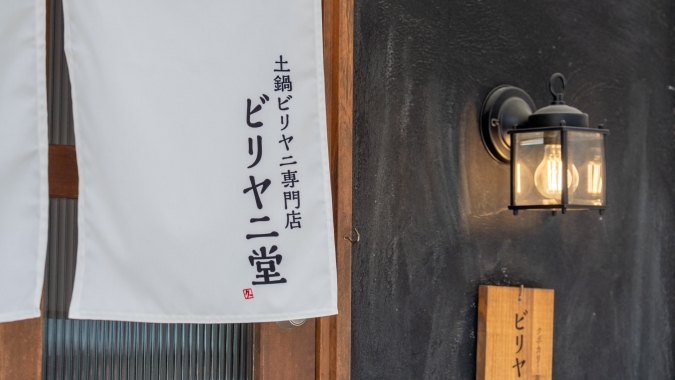 土鍋ビリヤニ専門店
ビリヤニ堂
ビリヤ